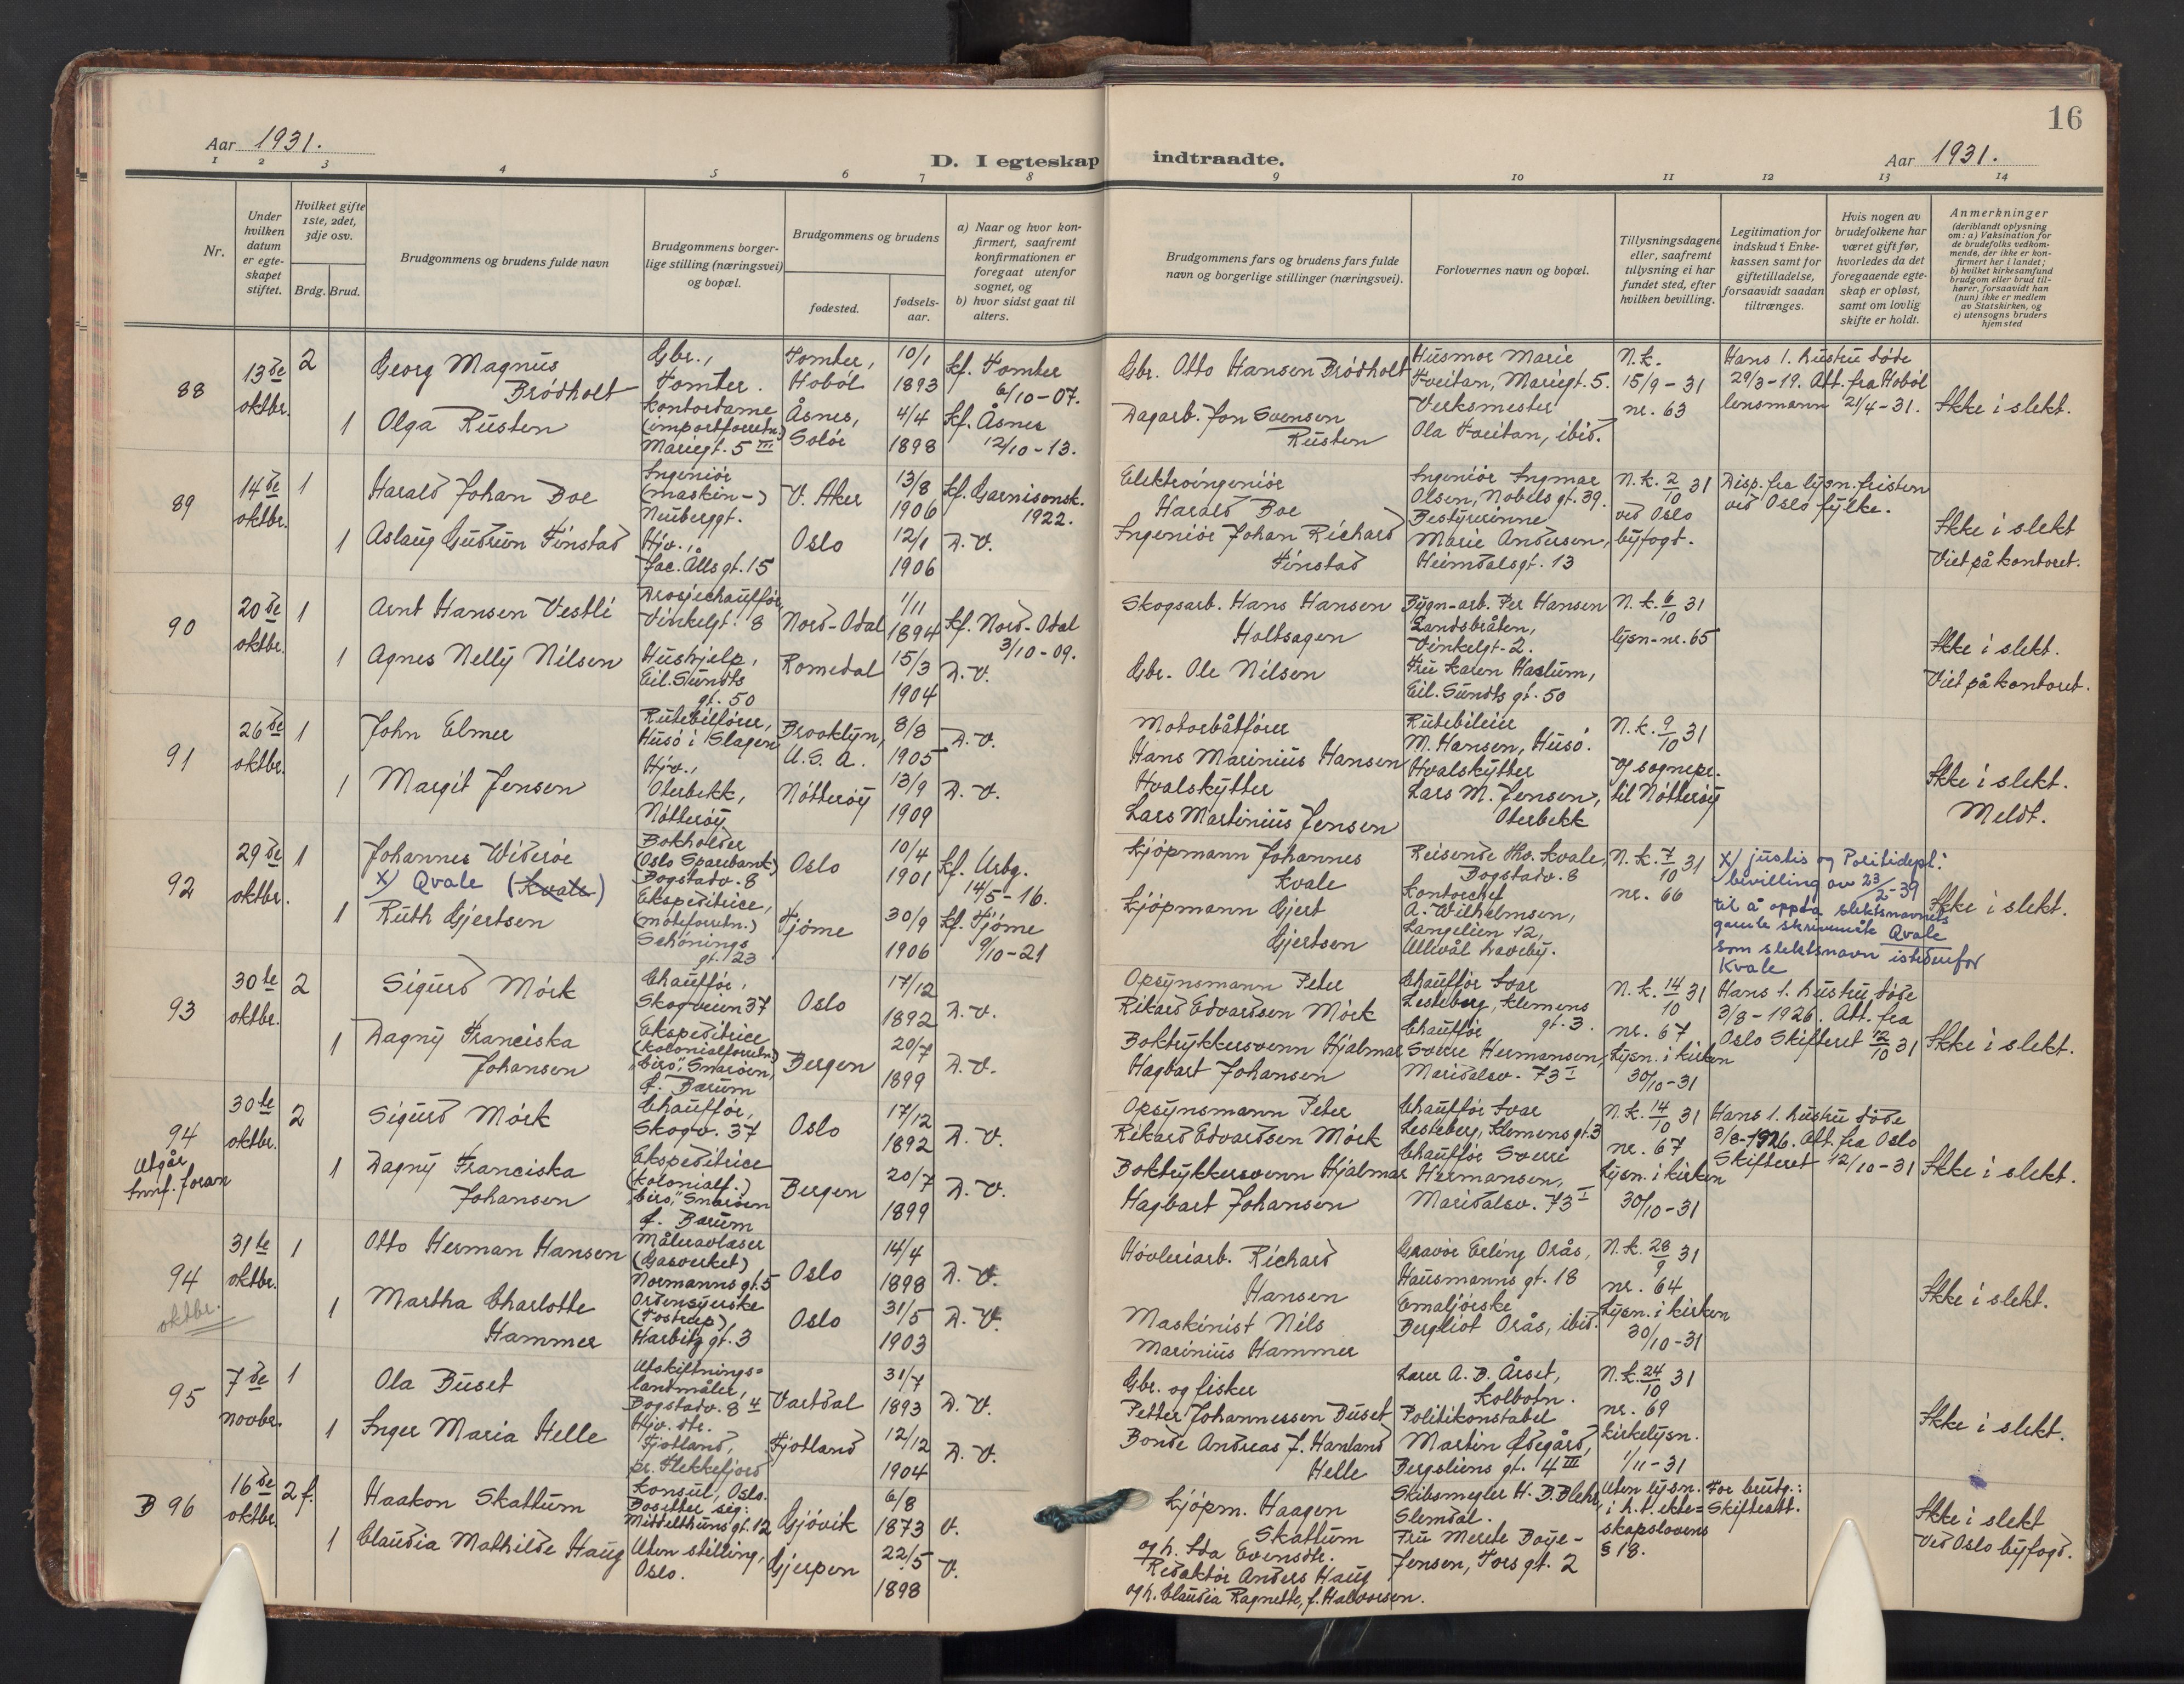 16
Aar 1931.
D. I egteskap indtraadte.
Aar 1931.
1 2 3 4 5 6 7 8 9 10 11 12 13 14
Nr.
Under hvilken datum er egteskapet stiftet.
Hvilket gifte 1ste, 2det, 3dje osv.
Brdg. Brud.
Brudgommens og brudens fulde navn
Brudgommens borgerlige stilling (næringsvei) og bopæl.
Brudgommens og brudens
fødested.
fødselsaar.
a) Naar og hvor konfirmert, saafremt konfirmationen er foregaat utenfor sognet, og
b) hvor sidst gaat til alters.
Brudgommens fars og brudens fars fulde navn og borgerlige stillinger (næringsvei).
Forlovernes navn og bopæl.
Tillysningsdagene eller, saafremt tillysning ei har fundet sted, efter hvilken bevilling.
Legitimation for indskud i Enkekassen samt for giftetilladelse, forsaavidt saadan tiltrænges.
Hvis nogen av brudefolkene har været gift før, hvorledes da det foregaaende egteskap er opløst, samt om lovlig skifte er holdt.
Anmerkninger
(deriblandt oplysning om: a) Vaksination for de brudefolks vedkommende, der ikke er konfirmert her i landet;
b) hvilket kirkesamfund brudgom eller brud tilhører, forsaavidt han (hun) ikke er medlem av Statskirken, og
c) utensogns bruders hjemsted
88
13de oktbr.
2
Georg Magnus Brödholt
Gbr., Tomter.
Tomter, Hoböl
10/1 1893
kf. Tomter 6/10-07.
Gbr. Otto Hansen Brödholt
Husmor Marie Tveitan, Mariegt. 5.
N.k. 15/9-31 nr. 63
Hans 1. hustru döde 29/3-19. Att. fra Hoböl lensmann 21/4-31.
Ikke i slekt.
1
Olga Rusten
Kontordame (importforretn.) Mariegt. 5 III
Åsnes, Solör
4/4 1898
kf. Åsnes 12/10-13.
Dagarb. Jon Svensen Rusten
Verksmester Ola Tveitan, ibid.
89
14de oktbr.
1
Harald Johan Boe
Ingeniör (maskin-) Neuberggt.
V. Aker
13/8 1906
kf. Garnisonsk. 1922.
Elektroingeniör Harald Boe
Ingeniör Ingmar Olsen, Nobels gt. 39.
N.k. 2/10 31 ved Oslo byfogt.
Disp. fra lysn.fristen ved Oslo fylke.
Ikke i slekt
Viet på kontoret.
1
Aslaug Gudrun Finstad
Hjv., Jac. Alls gt. 15
Oslo
12/1 1906
D.V.
Ingeniör Johan Richard Finstad
Bestyrerinne Marie Andersen, Heimdalsgt. 13
90
20de oktbr.
1
Arnt Hansen Vestli
Drosjechaufför, Vinkelgt. 8
Nord-Odal
1/11 1894
kf. Nord-Odal 3/10-09.
Skogsarb. Hans Hansen Holtsagen
Bygn-arb. Per Hansen Sandsbråten, Vinkelgt-2.
N.k. 6/10 31 lysn-nr. 65
Ikke i slekt.
Viet på kontoret.
1
Agnes Nelly Nilsen
Hushjelp, Eil. Sundts gt. 50
Romedal
15/3 1904
D.V.
Gbr. Ole Nilsen
Fru Karen Haslum, Eil. Sundts gt. 50
91
26de oktbr.
1
John Elmer
Rutebilförer, Husö i Slagen
Brooklyn, U.S.A.
8/8 1905
D.V.
Motorbåtförer Hans Marinius Hansen
Rutebileier M. Hansen, Husö.
N.k. 9/10 31 Of sognepr. til Nötteröy
Ikke i slekt.
Meldt.
1
Margit Jensen
Hjv., Oterbekk, Nötteröy
Nötteröy
13/9 1909
D.V.
Hvalskytter Lars Martinius Jensen
Hvalskytter Lars M. Jensen, Oterbekk
92
29de oktbr.
1
Johannes Wideröe
X) Qvale (Kvale)
Bokholder (Oslo Sparebank) Bogstadv. 8
Oslo
10/4 1901
kf. Urbg. 14/5-16.
Kjöpmann Johannes Kvale
Reisende Tho. Kvale, Bogstadv. 8
N.k. 7/10 31 nr. 66
X) justis og Politidept: bevilling av 23/2-39 til å oppta slektsnavnets gamle skrivemåte Qvale som slektsnavn istedenfor Kvale
Ikke i slekt.
1
Ruth Gjertsen
Ekspeditrice, (moteforretn.) Schönings gt. 23
Tjöme
30/9 1906
kf. Tjöme 9/10-21
Kjöpmann Gjert Gjertsen
Kontorchef A. Wilhelmsen, Langelien 12, Ullevål haveby.
93
30te oktbr.
2
Sigurd Mörk
Chaufför, Skogveien 37
Oslo
17/12 1892
D.V.
Opsynsmann Peter Rikard Edvardsen Mörk
Chaufför Ivar Lesteberg, Klemens gt. 3.
N.k. 14/10 31 nr. 67 Lysn. i kirken 30/10-31
Hans 1. hustru döde 3/8-1926. Att. fra Oslo Skifteret 12/10 31
Ikke i slekt.
1
Dagny Franciska Johansen
Ekspeditrice (kolonialforretn.) "Ciro", Snaröen, f. Bærum
Bergen
20/7 1899
D.V.
Boktrykkersvenn Hjalmar Hagbart Johansen
Chaufför Sverre Hermansen, Maridalsv. 73 I
94
Utgår Innf. foran
30te oktbr.
2
Sigurd Mörk
Chaufför, Skogv. 37
Oslo
17/12 1892
D.V.
Opsynsmann Peter Rikard Edvardsen Mörk
Chaufför Ivar Lesteberg, Klemens gt. 3
N.k. 14/10 31 nr. 67 Lysn. i kirken 30/10-31
Hans 1. hustru döde 3/8-1926. Att. fra Oslo Skifteret 12/10-31
Ikke i slekt.
1
Dagny Franciska Johansen
Ekspeditrice (kolonialf.) "Ciro", Snaröen f. Bærum
Bergen
20/7 1899
D.V.
Boktrykkersvenn Hjalmar Hagbart Johansen
Chaufför Sverri Hermansen, Maridalsv. 73 I
94
oktbr.
31te oktbr.
1
Otto Herman Hansen
Måleravlæser (Gasverket) Normanns gt. 5
Oslo
14/4 1898
D.V.
Hövleriarb. Richard Hansen
Gravör Erling Orås, Hausmanns gt. 18
N.k. 28/9 31 nr. 64 Lysn. i kirken 30/10-31
Ikke i slekt.
1
Martha Charlotte Hammer
Ordensyerske (Tostrup), Harbitz gt. 3
Oslo
31/5 1903
D.V.
Maskinist Nils Marinius Hammer
Emaljörske Bergliot Orås, ibid.
95
7de novbr.
1
Ola Buset
Utskiftningslandmåler, Bogstadv. 8 4
Vartdal
31/7 1893
D.V.
Gbr. og fisker Petter Johannessen Buset
Lærer A. D. Årset, Kolbotn.
N.k. 24/10 31 nr. 69 Kirkelysn. 1/11-31
Ikke i slekt.
1
Inger Maria Helle
Hjv. dtr. Fjotland, pr. Flekkefjord
Fjotland
12/12 1904
D.V.
Bonde Andreas J. Hanland Helle
Politikonstabel Martin Ödegård, Bergsliens gt. 4 III
B 96
16de oktbr.
2 f.
Haakon Skattum
Konsul, Oslo. Bosetter sig: Middelthuns gt. 12
Gjövik
6/8 1873
V.
Kjöpm. Haagen Skattum og h. Ida Evensdtr.
Skibsmegler H. B. Blehr, Slemdal.
Uten lysn. i h. t. ekteskapslovens § 18.
For brudg.: Skifteatt.
Ikke i slekt
Ved Oslo byfogd.
1
Claudia Mathilde Haug
Uten stilling, Oslo.
Gjerpen
22/5 1898
V.
Redaktör Anders Haug og h. Claudia Ragnette, f. Halvorsen.
Fru Merete Boye-Jensen, Tors gt. 2